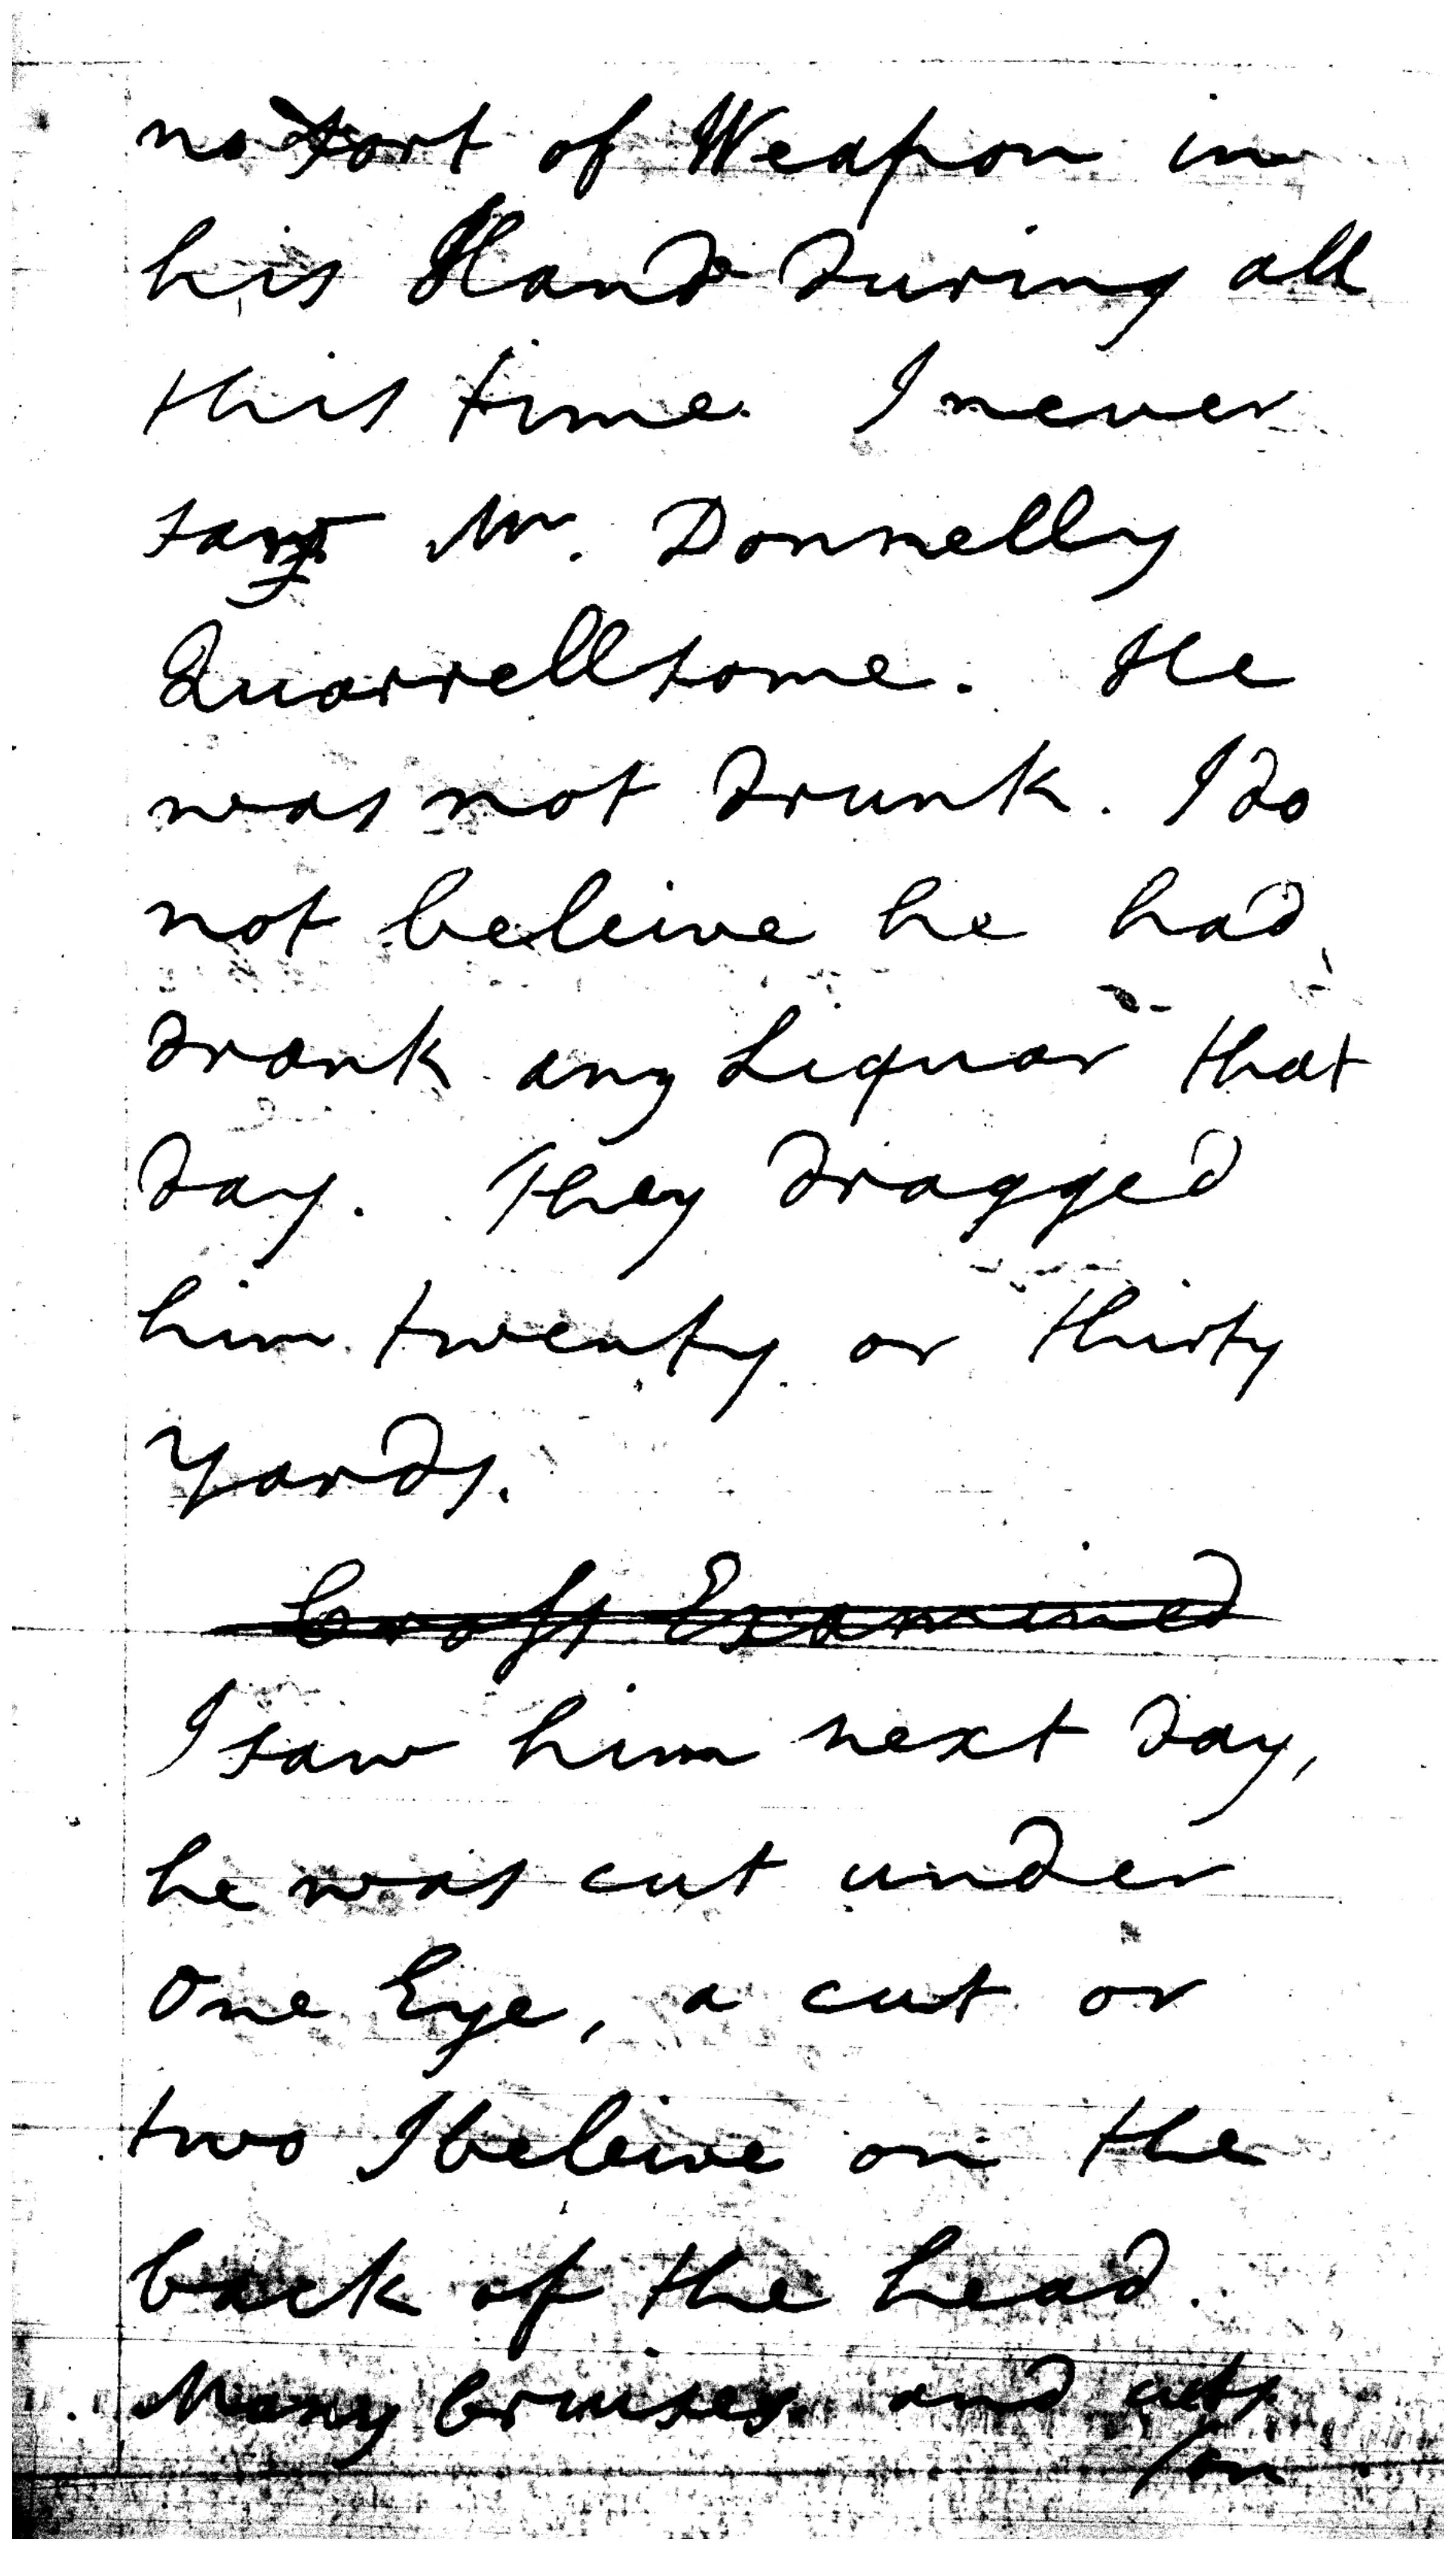 no sort of Weapon in
his Hand during all
this time. I never
saw Mr. Donnelly
Quarrellsome. He
was not drunk. I do
not beleive he had
drank any Liquor that
day. They dragged
him twenty or thirty
Yards.
Cross Examined
I saw him next day,
he was cut under
One Eye, a cut or
two I beleive on the
back of the head.
Many bruises and cuts
/on